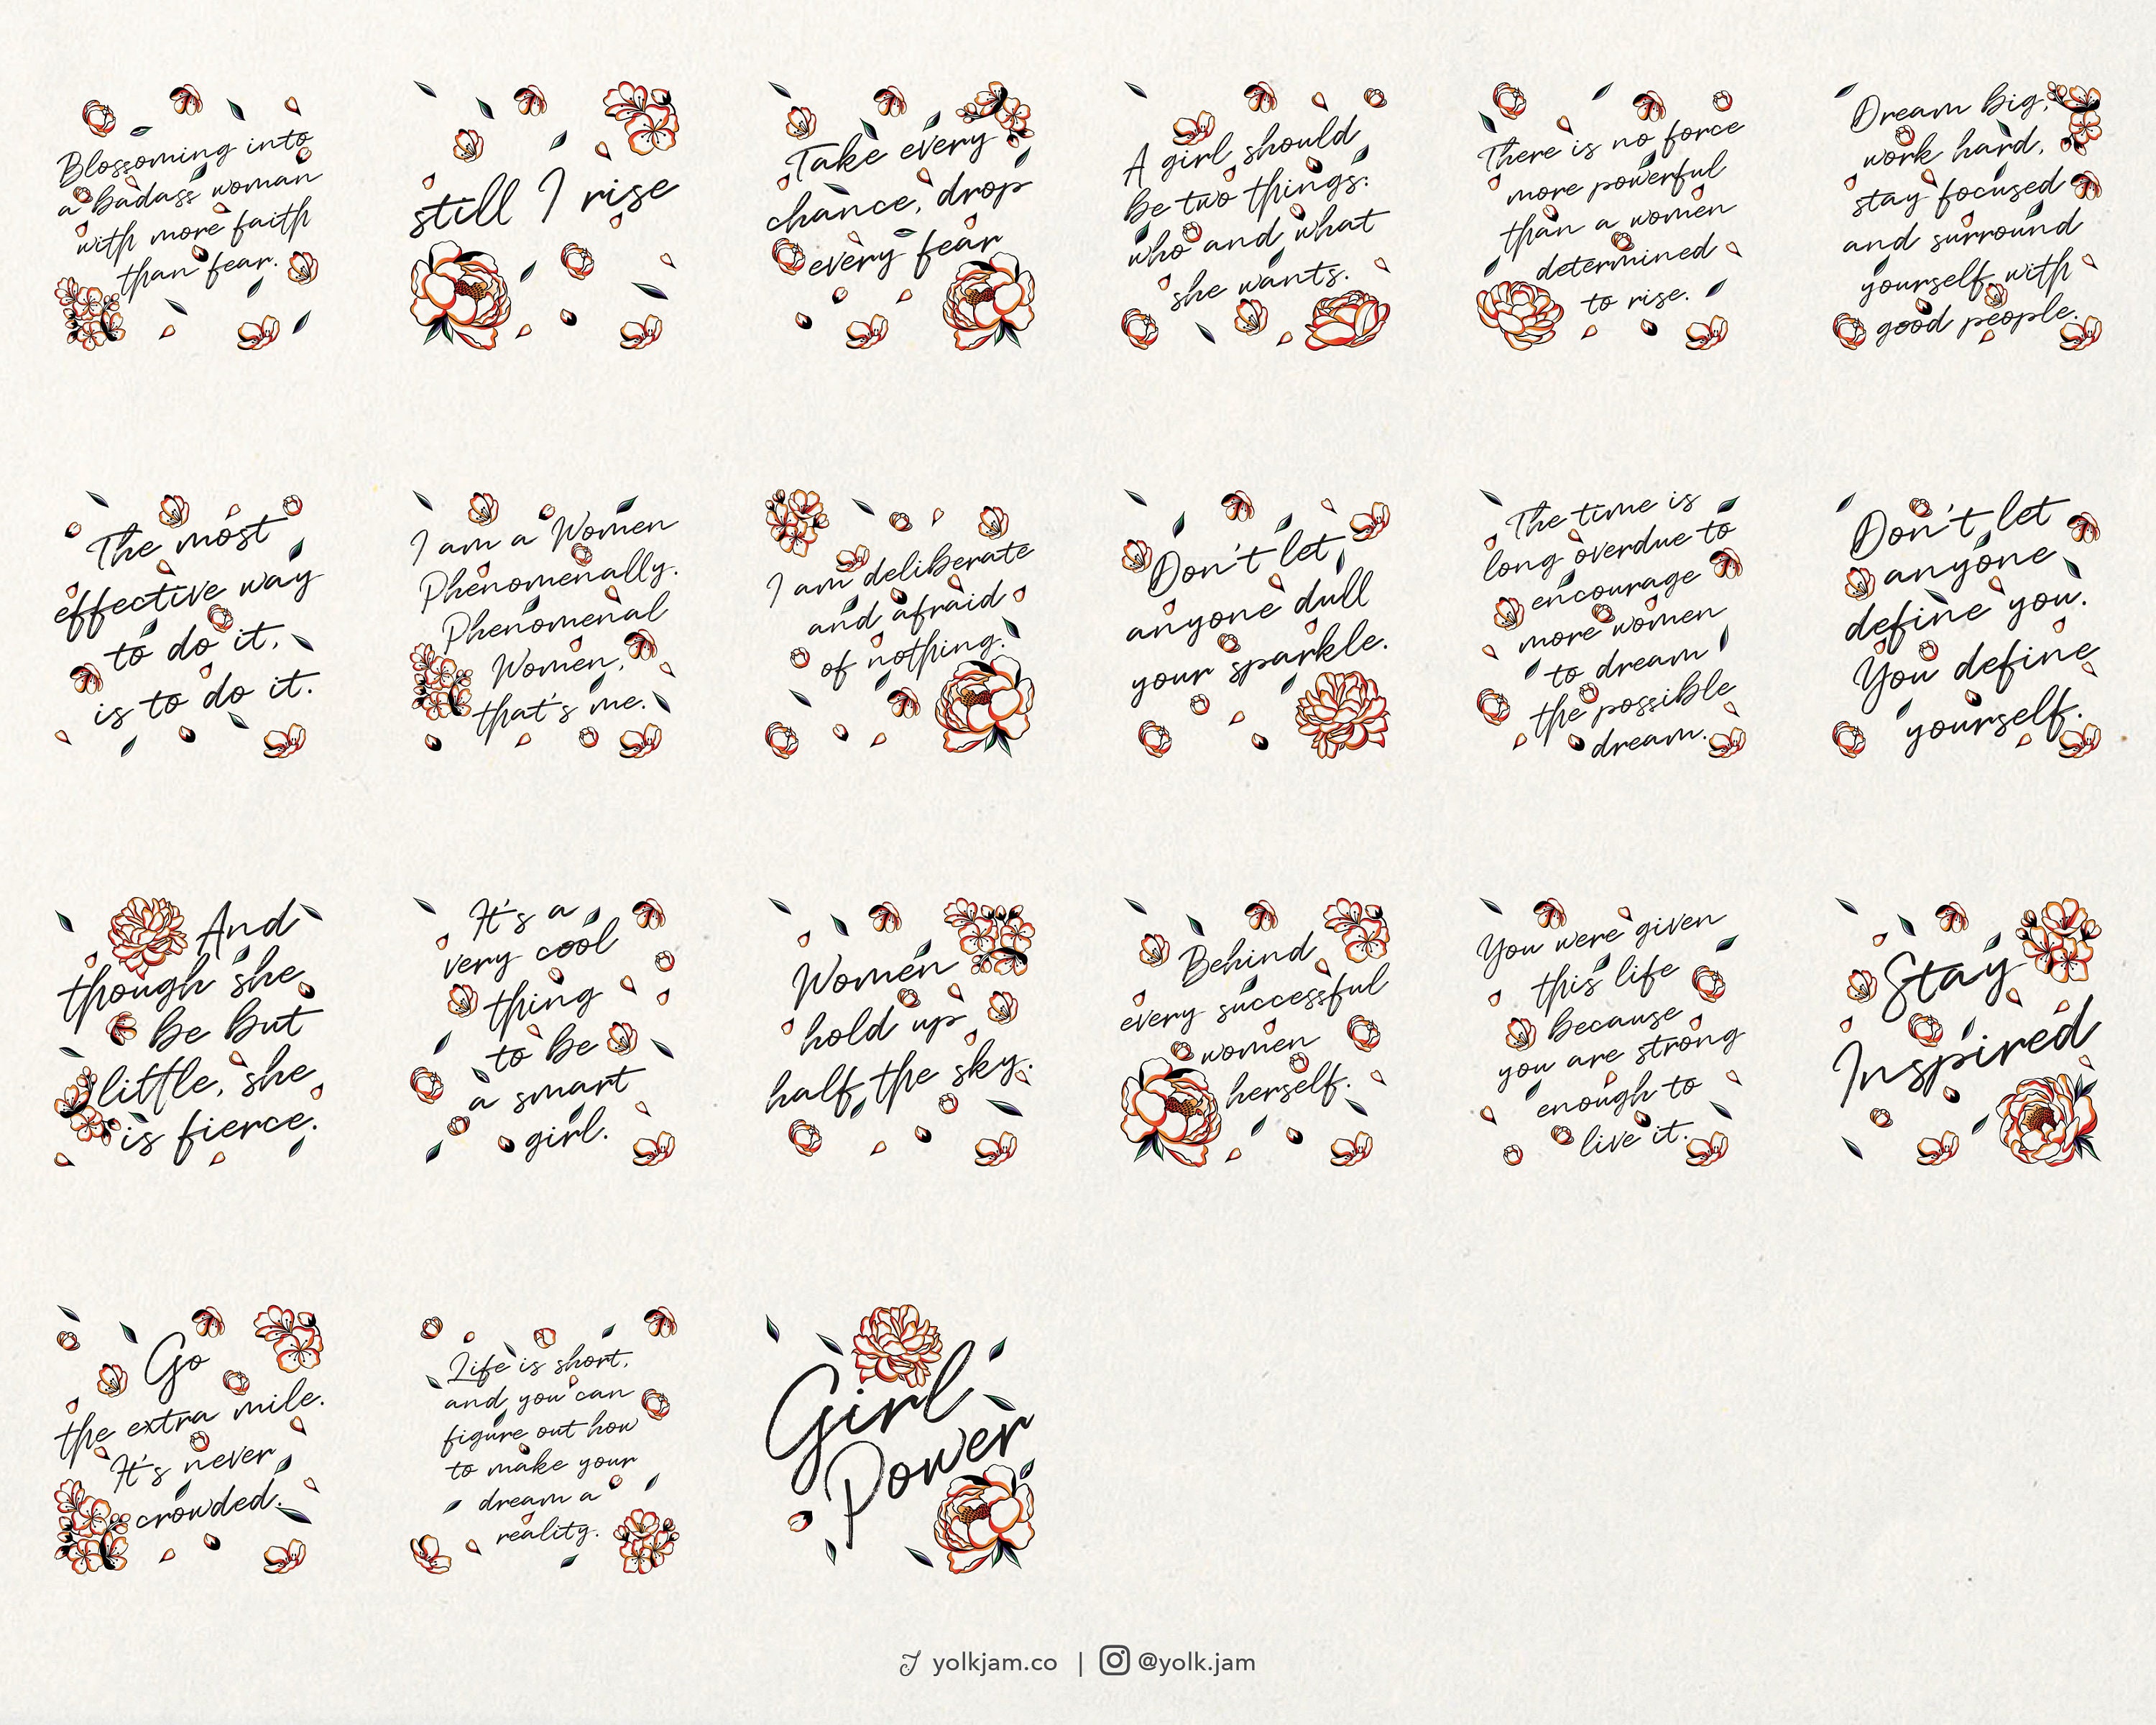 Blossoming into
a badass woman
with more faith
than fear.
still I rise
Take every
chance, drop
every fear
A girl should
be two things:
who and what
she wants.
There is no force
more powerful
than a women
determined
to rise.
Dream big,
work hard,
stay focused
and surround
yourself with
good people.
The most
effective way
to do it,
is to do it.
I am a Women
Phenomenally.
Phenomenal
Women,
that's me.
I am deliberate
and afraid
of nothing.
Don't let
anyone dull
your sparkle.
The time is
long overdue to
encourage
more women
to dream
the possible
dream.
Don't let
anyone
define you.
You define
yourself.
And
though she
be but
little, she
is fierce.
It's a
very cool
thing
to be
a smart
girl.
Women
hold up
half the sky.
Behind
every successful
women
herself.
You were given
this life
because
you are strong
enough to
live it.
Stay
Inspired
Go
the extra mile.
It's never
crowded.
Life is short,
and you can
figure out how
to make your
dream a
reality.
Girl
Power
yolkjam.co | @yolk.jam